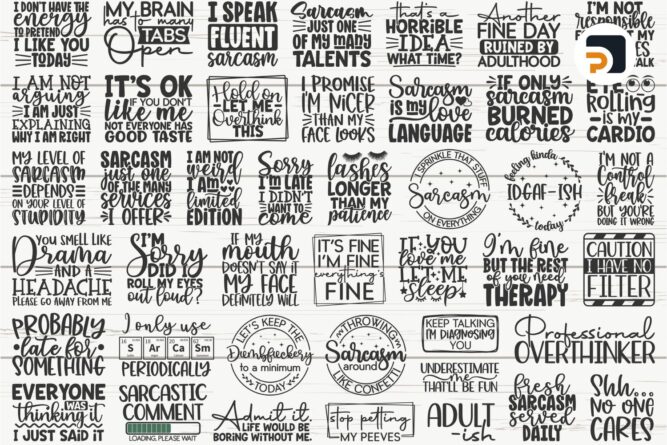 I DON'T HAVE THE
ENERGY
TO PRETEND
I LIKE YOU
TODAY
MY BRAIN
has too many
TABS
Open
I SPEAK
FLUENT
sarcasm
Sarcasm
JUST ONE
OF MY MANY
TALENTS
that's a
HORRIBLE
IDEA
WHAT TIME?
Another
FINE DAY
RUINED BY
ADULTHOOD
I'M NOT
responsible
P
I AM NOT
arguing
I AM JUST
EXPLAINING
WHY I AM RIGHT
IT'S OK
IF YOU DON'T
like me
NOT EVERYONE HAS
GOOD TASTE
Hold on
LET ME
Overthink
THIS
I PROMISE
I'M NICER
THAN MY
FACE LOOKS
Sarcasm
IS my love
LANGUAGE
IF ONLY
sarcasm
BURNED
calories
EYE
ROLLING
is my
CARDIO
MY LEVEL OF
SARCASM
DEPENDS
ON YOUR LEVEL OF
STUPIDITY
SARCASM
just one
OF THE MANY
services
I OFFER
I AM NOT
weird
I AM
limited
EDITION
Sorry
I'M LATE
I DIDN'T
WANT TO
come
lashes
LONGER
THAN MY
patience
I SPRINKLE THAT STUFF
Sarcasm
ON EVERYTHING
feeling kinda
IDGAF-ISH
today
I'M NOT A
Control
freak
BUT YOU'RE
DOING IT WRONG
YOU SMELL LIKE
Drama
AND A
HEADACHE
PLEASE GO AWAY FROM ME
I'M
Sorry
DID I
ROLL MY EYES
out loud?
IF MY
mouth
DOESN'T SAY IT
MY FACE
DEFINITELY WILL
IT'S FINE
I'M FINE
everything's
FINE
IF YOU
love me
LET ME
sleep
I'm fine
BUT THE REST
of you need
THERAPY
CAUTION
I HAVE NO
FILTER
PROBABLY
late for
SOMETHING
I only use
16 18 20 62
S Ar Ca Sm
PERIODICALLY
LET'S KEEP THE
Dumbfuckery
to a minimum
TODAY
THROWING
Sarcasm
around
LIKE CONFETTI
KEEP TALKING
I'M DIAGNOSING
YOU
Professional
OVERTHINKER
EVERYONE
WAS
thinking it
I JUST SAID IT
SARCASTIC
COMMENT
LOADING, PLEASE WAIT
Admit it
LIFE WOULD BE
BORING WITHOUT ME.
stop petting
MY PEEVES
UNDERESTIMATE
me
THAT'LL BE FUN
ADULT
-ish
fresh
SARCASM
served
DAILY
Shh..
NO ONE
CARES